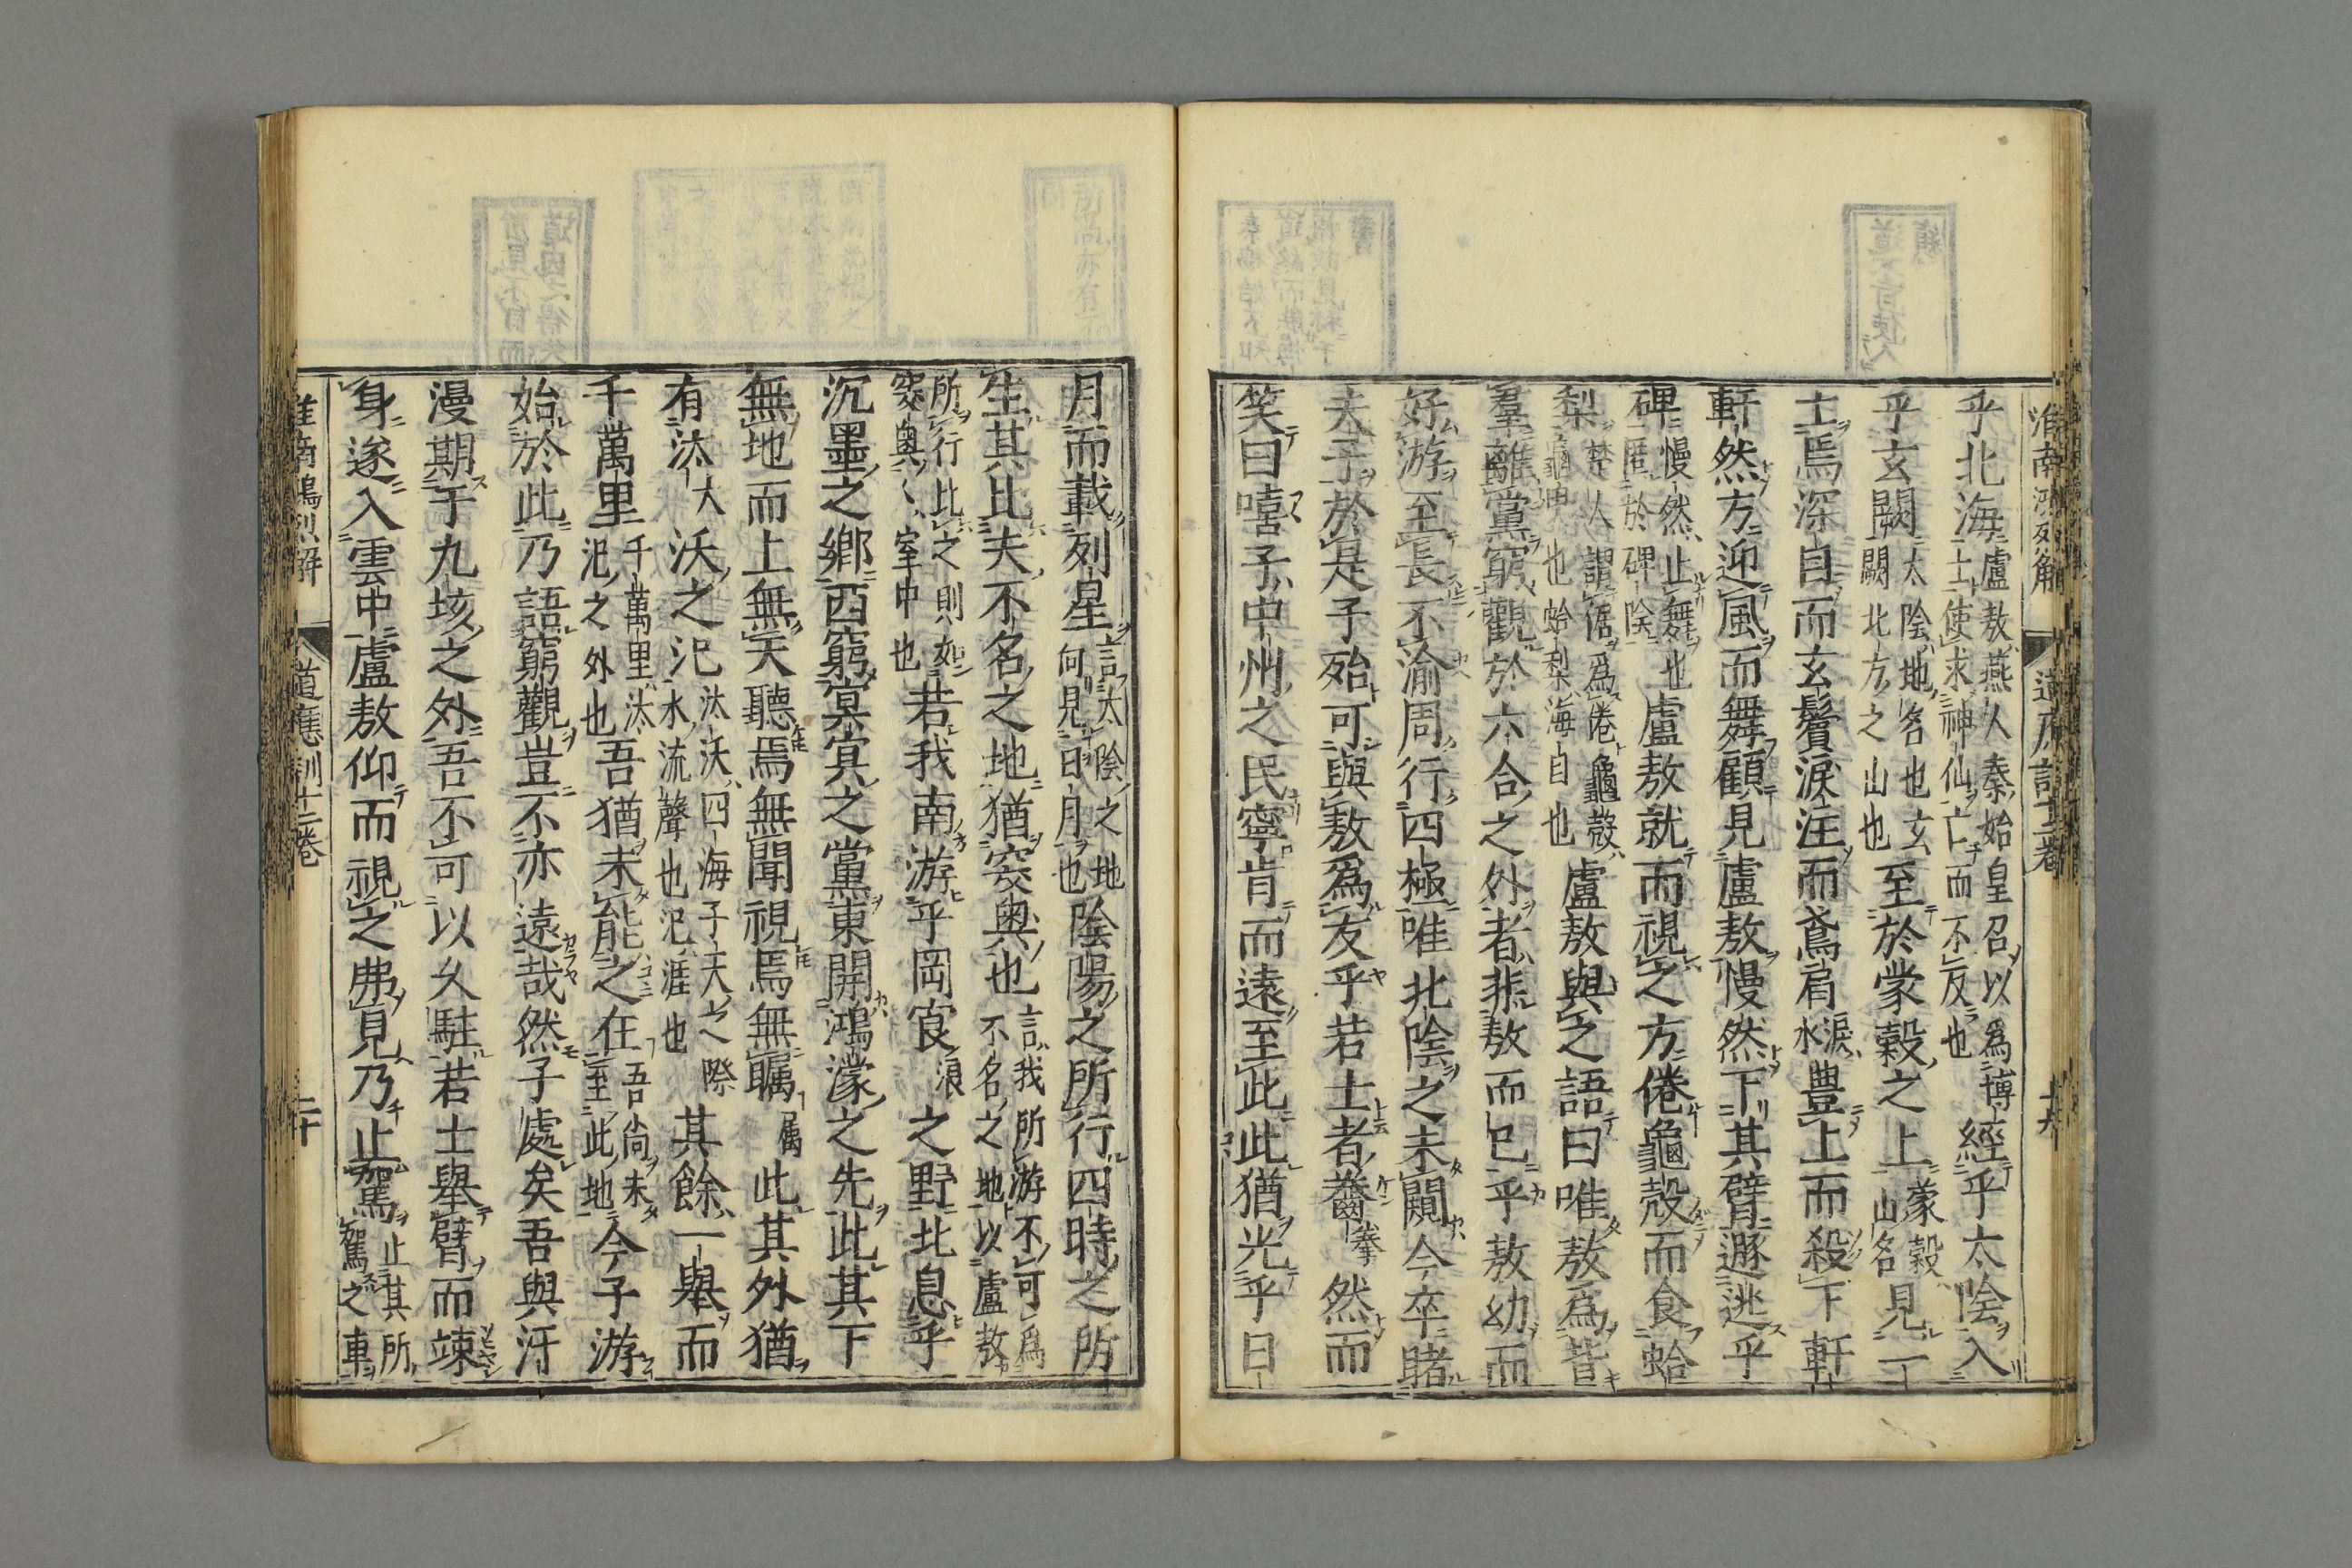 淮南鴻烈解 道應訓十二卷 十九
乎北海盧敖燕人秦始皇召以爲博士使求神仙亡而不反也經乎太陰入
乎玄闕太陰地名也玄闕北方之山也至於蒙穀之上蒙穀山名見一
士焉深目而玄鬢淚注而鳶肩淚水豊上而殺下軒
軒然方迎風而舞顧見盧敖慢然下其臂遯逃乎
碑慢然止舞也匿於碑陰盧敖就而視之方倦龜殼而食蛤
梨楚人謂倨爲倦龜殼龜甲也蛤梨海自也盧敖與之語曰唯敖爲背
羣離黨窮觀於六合之外者非敖而已乎敖幼而
好游至長不渝周行四極唯北陰之未闚今卒睹
夫子於是子殆可與敖爲友乎若士者齤拳然而
笑曰嘻子中州之民寧肯而遠至此此猶光乎日
月而載列星言太陰之地何見日月也陰陽之所行四時之所
生其比夫不名之地猶窔奧也言我所游不可爲不名之地以盧敖
所行比之則如窔奧窔奧室中也若我南游乎岡㝗浪之野北息乎
沉墨之鄉西窮㝠㝠之黨東開鴻濛之先此其下
無地而上無天聽焉無聞視焉無矚屬此其外猶
有汰大沃之汜汰沃四海予天之際水流聲也汜涯也其餘一舉而
千萬里千萬里汰汜之外也吾猶未能之在吾尚未至此地今子游
始於此乃語窮觀豈不亦遠哉然子處矣吾與汗
漫期于九垓之外吾不可以久駐若士舉臂而竦
身遂入雲中盧敖仰而視之弗見乃止駕止其所駕之車
淮南鴻烈解 道應訓十二卷 二十